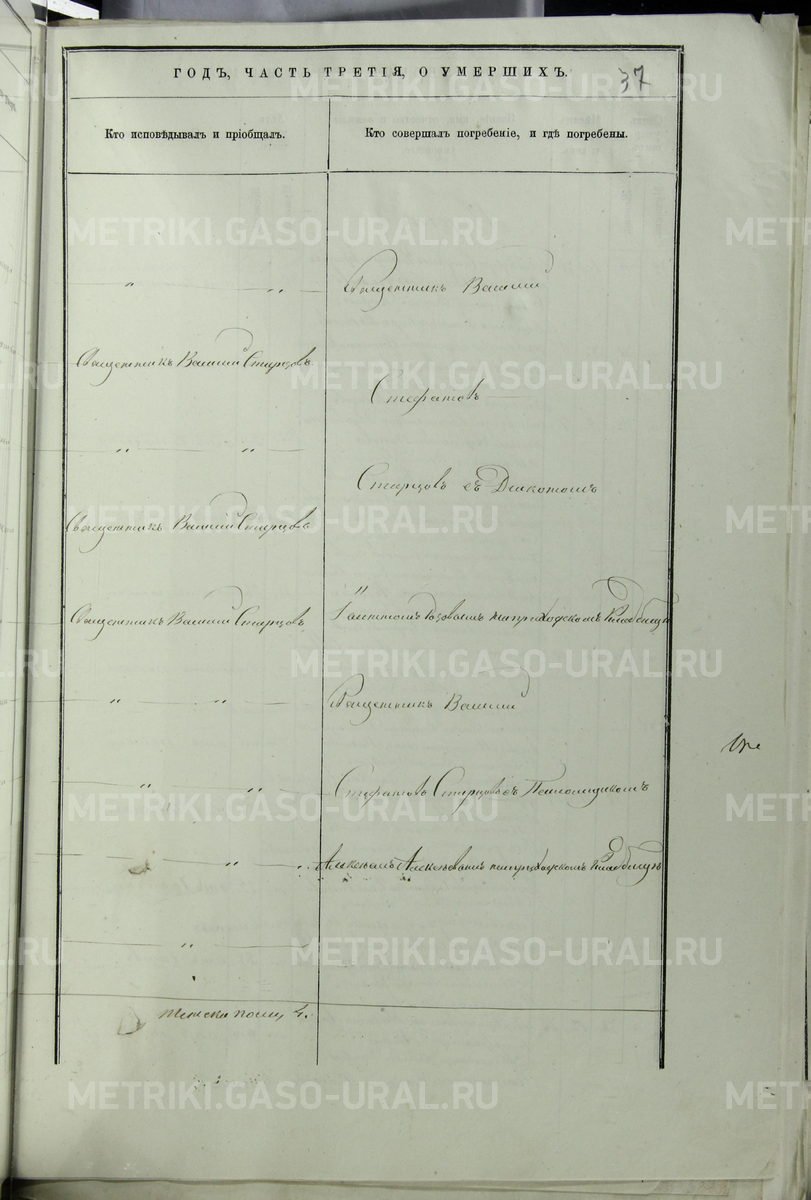 ГОДЪ, ЧАСТЬ ТРЕТІЯ, О УМЕРШИХЪ.
37
Кто исповѣдывалъ и пріобщалъ.
Кто совершалъ погребеніе, и гдѣ погребены.
" "
Священникъ Василій
Священникъ Василій Старцовъ
Стефановъ
" "
Старцовъ съ Діакономъ
Священникъ Василій Старцовъ
Священникъ Василій Старцовъ
на приходскомъ Кладбищѣ
" "
Священникъ Василій
" "
Стефановъ Старцовъ съ Псаломщикомъ
" "
Алексѣемъ на приходскомъ Кладбищѣ
"
женска полу 4.
METRIKI.GASO-URAL.RU